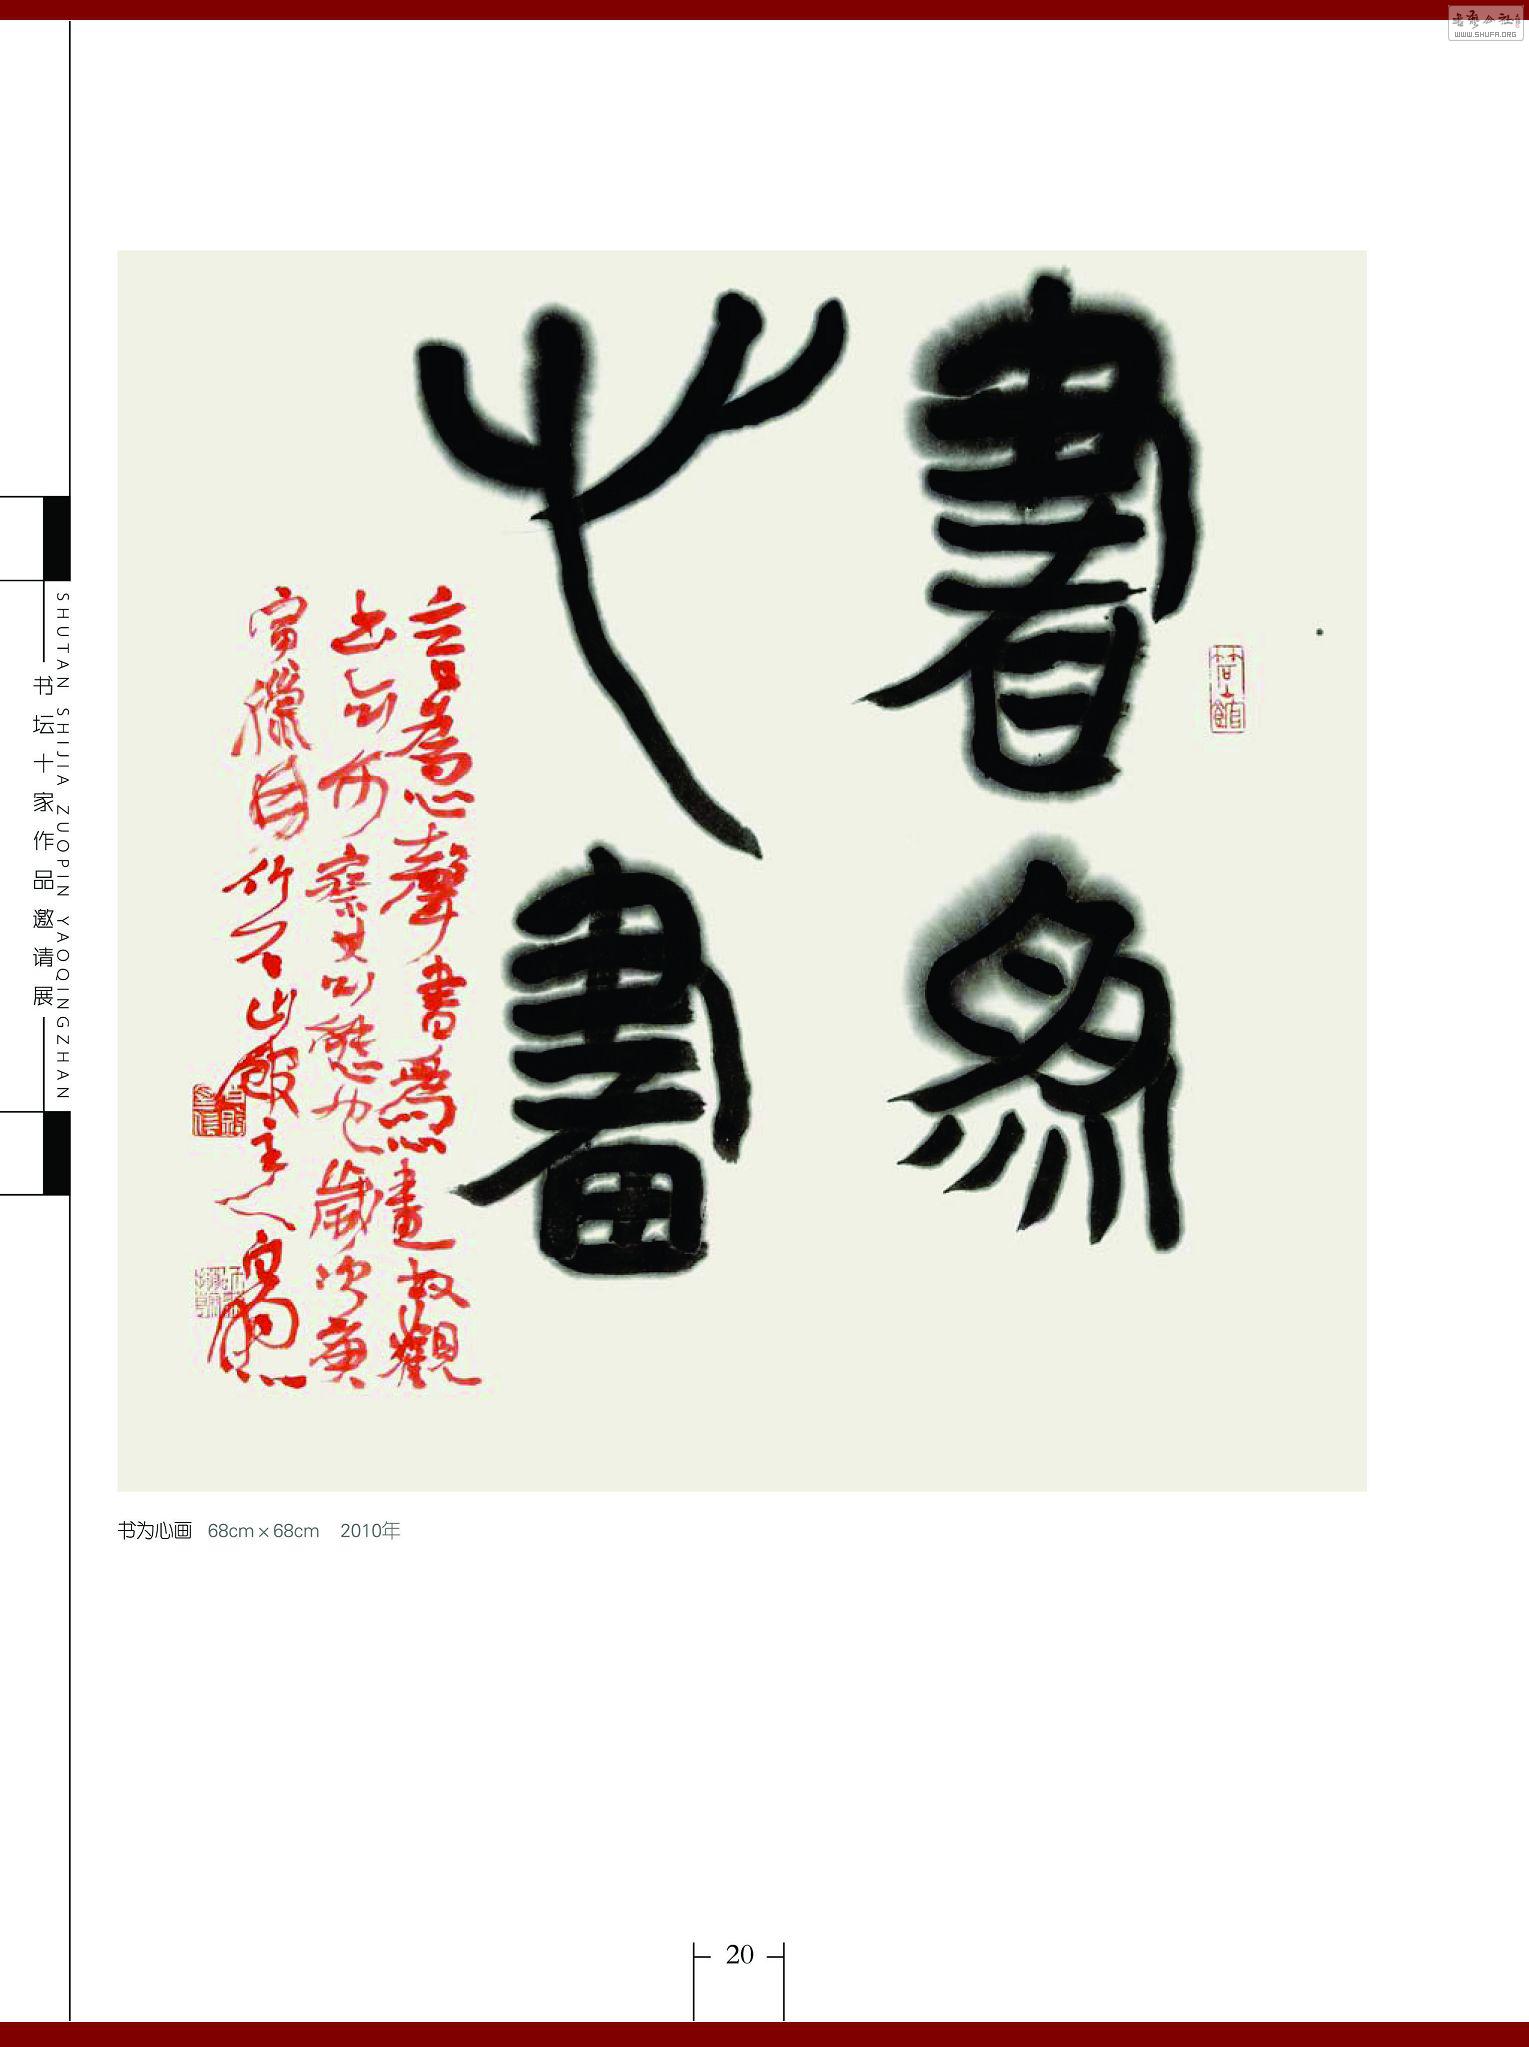 書為
心畫
言為心聲書為心畫故觀
其書可察其心態也歲次庚
寅臘月竹石山館主人
书为心画 68cm×68cm 2010年
书坛十家作品邀请展
SHUTAN SHIJIA ZUOPIN YAOQINGZHAN
20
WWW.SHUFA.ORG